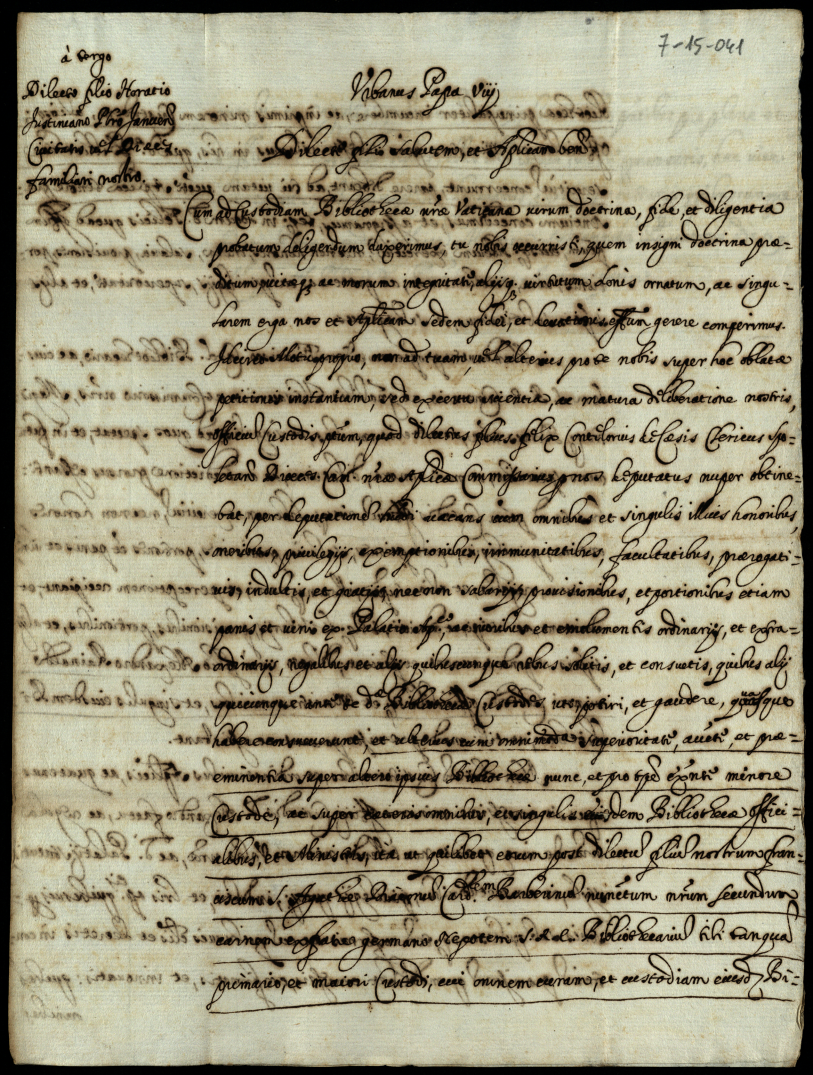 7-15-041
à tergo
Dilecto filio Horatio
Justiniano Pbro Januen
Civitatis vel Dioces
familiari nostro.
Vrbanus Papa Viij
Dilecte fili salutem, et Aplicam ben
Cum ad Custodiam Bibliothecæ nræ Vaticanæ virum doctrina, fide, et diligentia
probatum deligendum duxerimus, tu nobis occurristi, quem insigni doctrina præ-
ditum, vitæq; ac morum integritate, alijsq. virtutum donis ornatum, ac singu-
larem erga nos et Aplicam Sedem fidei, et devotionis affum gerere comperimus.
Idcirco Motu proprio, non ad tuam, vel alterius pro te nobis super hoc oblatæ
petitionis instantiam, sed ex certa scientia, ac matura deliberatione nostris,
officiũ Custodis ptum, quod dilectus filius Felix Contilorius Clericus
Dioces. Cam. nræ Aplicæ Commissarius p nos deputatus nuper obtine-
bat, per deputationẽ vacans cum omnibus et singulis illius honoribus,
oneribus, privilegijs, exemptionibus, immunitatibus, facultatibus, prærogati-
vis, indultis, et gratijs, necnon salarijs, provisionibus, et portionibus etiam
panis et vini ex Palatio Aplico, ac iuribus et emolumentis ordinarijs, et extra-
ordinarijs, regalibus et alijs quibuscunque rebus solitis, et consuetis, quibus alij
quicunque ante te dæ Bibliothecæ Custodes uti, potiri, et gaudere, quasque
habere consueverunt, et ulterius cum omnimoda superioritate, aucte, et præ-
eminentia super altero ipsius Bibliothecæ nunc, et pro tpe exnte minore
Custode, ac super cæteris omnibus, et singulis eiusdem Bibliothecæ offici-
alibus, et Ministris, ita ut quilibet eorum post dilectũ filiũ nostrum Fran-
ciscum S. Agathæ Diaconũ Cardlem Barberinũ nuncupatum nrum secundum
carnem ex fratre germano Nepotem S. R. E. Bibliothecariũ tibi tanquã
primario, et maiori Custodi, cui omnem curam, et custodiam eiusd. Bi-